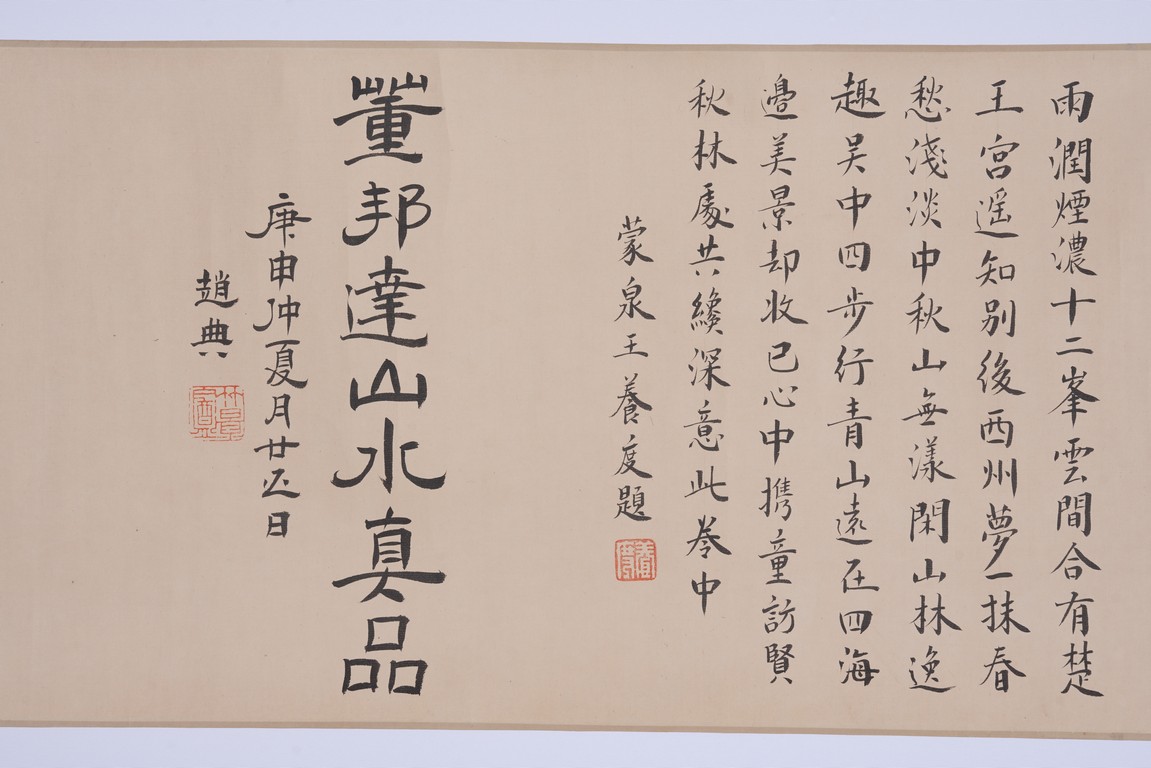 雨潤煙濃十二峯雲間合有楚
王宮遥知別後西州夢一抹春
愁淺淡中秋山無漾閑山林逸
趣吴中四步行青山遠在四海
邊美景却收已心中携童訪賢
秋林處共纔深意此卷中
蒙泉王養度題
養度
董邦達山水真品
庚申仲夏月廿五日
趙典